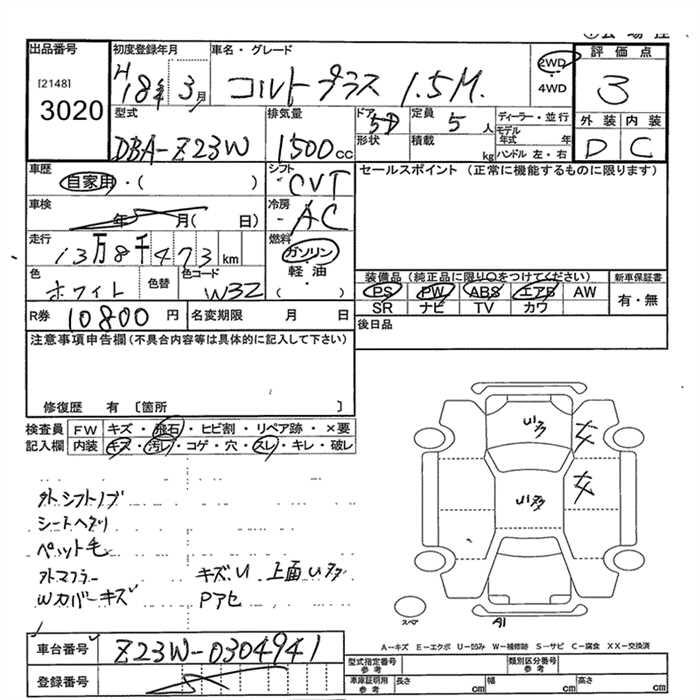 出品番号
[2148]
3020
初度登録年月
H18年 3月
車名・グレード
コルトプラス 1.5M.
2WD
4WD
評価点
3
外装 内装
D C
型式
DBA-Z23W
排気量
1500cc
ドア 5D
形状
定員 5人
積載 kg
ディーラー・並行
モデル年式 年
ハンドル 左・右
車歴
自家用・( )
シフト
CVT
セールスポイント(正常に機能するものに限ります)
車検
年 月( 日)
冷房
AC
走行
13万8千473km
燃料
ガソリン
軽油
( )
色
ホワイト
色替
色コード
W32
装備品(純正品に限り○をつけてください)
PS PW ABS エアB AW
SR ナビ TV カワ
新車保証書
有・無
R券 10800円
名変期限 月 日
後日品
注意事項申告欄(不具合内容等は具体的に記入して下さい)
修復歴 有 〔箇所 〕
検査員記入欄
FW キズ・飛石・ヒビ割・リペア跡・×要
内装 キズ・汚レ・コゲ・穴・スレ・キレ・破レ
外シフトノブ
シートヘタリ
ペット毛
外マフラー キズ、U 上面U多
Wカバーキズ Pアセ
U多
U多
スペア
A1
A-キズ E-エクボ U-凹み W-補修跡 S-サビ C-腐食 XX-交換済
車台番号
Z23W-0304941
登録番号
型式指定番号 参考
類別区分番号 参考
車庫証明用 参考
長さ cm 幅 cm 高さ cm